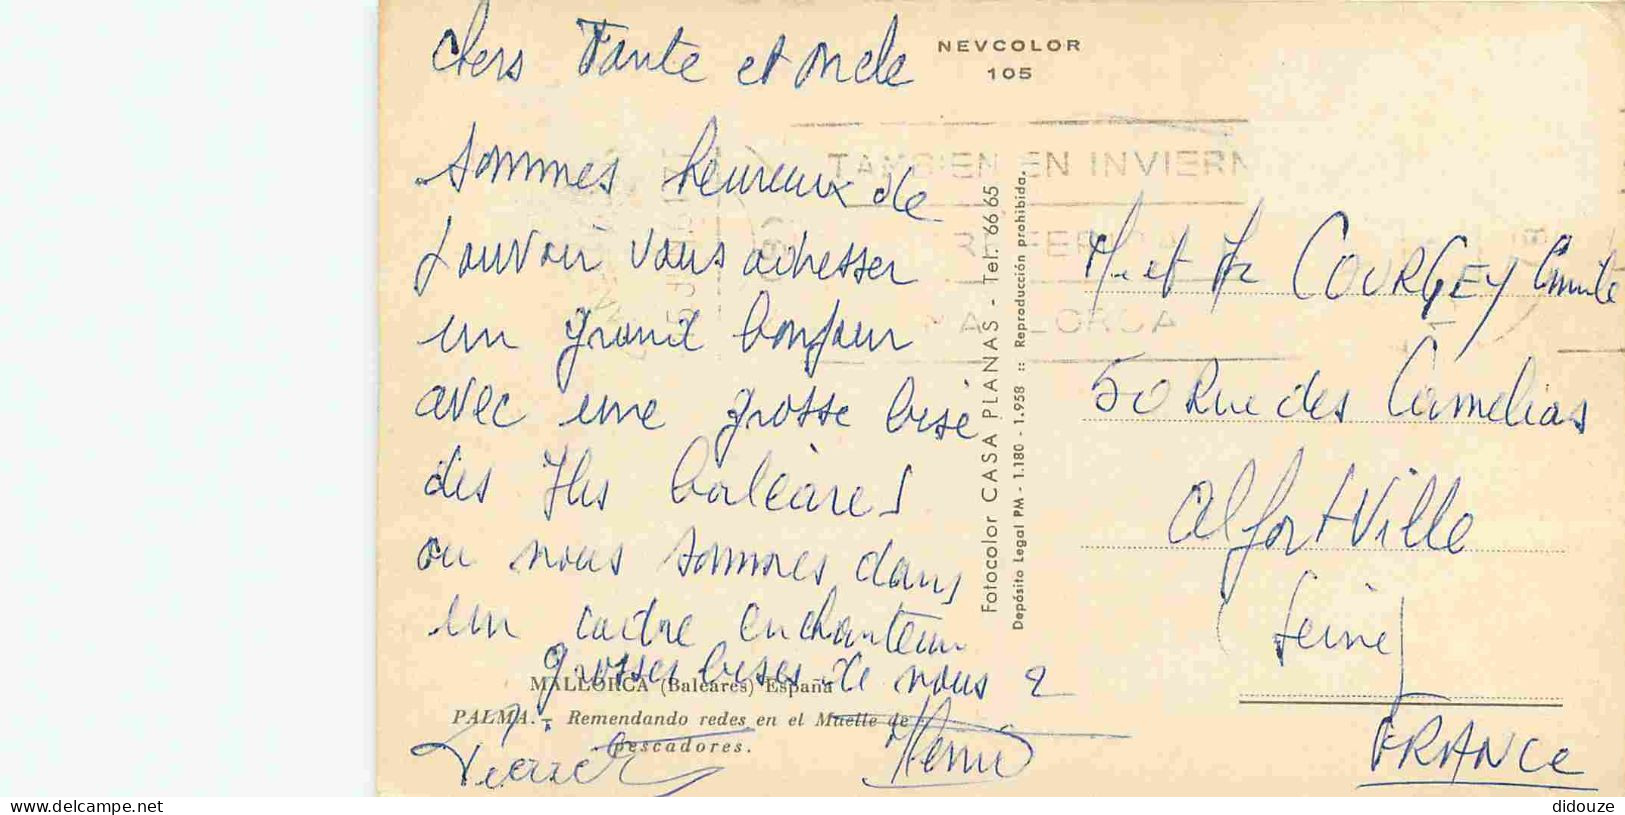 NEVCOLOR
105
Chers Tante et oncle
sommes heureux de
pouvoir vous adresser
un grand bonjour
avec une grosse bise
des Iles baléares
ou nous sommes dans
un cadre enchanteur
grosses bises de nous 2
Pierre Rémi
MALLORCA (Baleares) España
PALMA.- Remendando redes en el Muelle de
pescadores.
Fotocolor CASA PLANAS - Tel. 66 65
Depósito Legal PM - 1.180 - 1.958 :: Reproducción prohibida.
TAMBIEN EN INVIERN
MALLORCA
M. et Me COURGEY
50 Rue des Camelias
Alfortville
(Seine)
FRANCE
www.delcampe.net
didouze